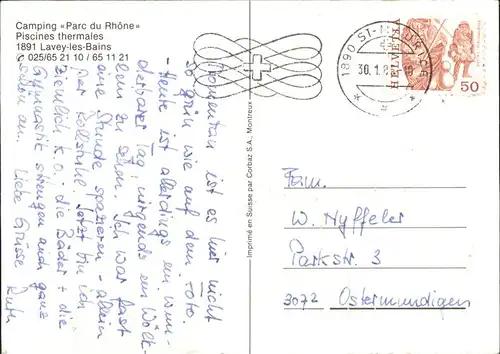 Camping «Parc du Rhône»
Piscines thermales
1891 Lavey-les-Bains
✆ 025/65 21 10 / 65 11 21
Momentan ist es hier nicht
so grün wie auf dem Foto.
- Heute ist allerdings ein wun-
derbarer Tag, nirgends ein Wölk-
lein zu sehen. Ich war fast
eine Stunde spazieren - allein
per Rollstuhl. Jetzt bin ich
ziemlich k.o. - die Bäder + die
Gymnastik strengen auch ganz
schön an. Liebe Grüsse
Ruth
Imprimé en Suisse par Corbaz S.A., Montreux
1890 ST-MAURICE
30.1.8
HELVETIA
50
Fam.
W. Nyffeler
Parkstr. 3
3072 Ostermundigen